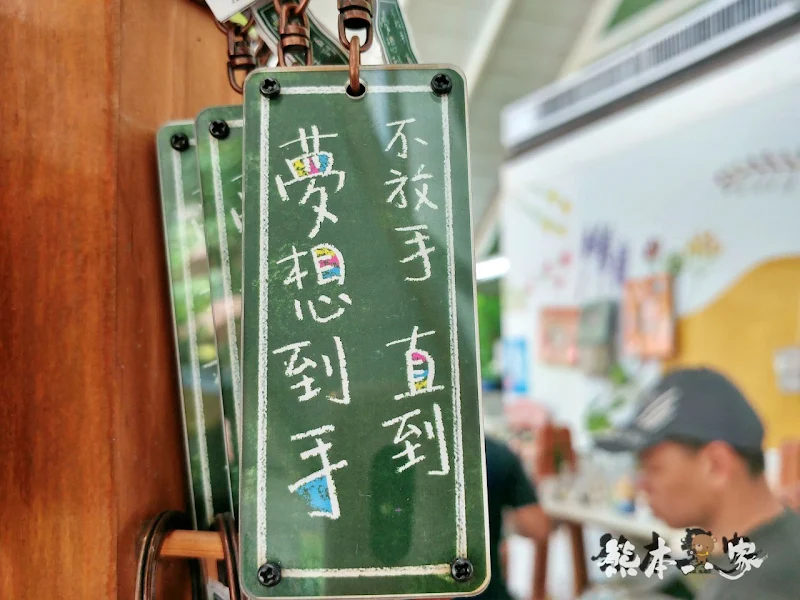 不放手 直到
夢想到手
熊本一家